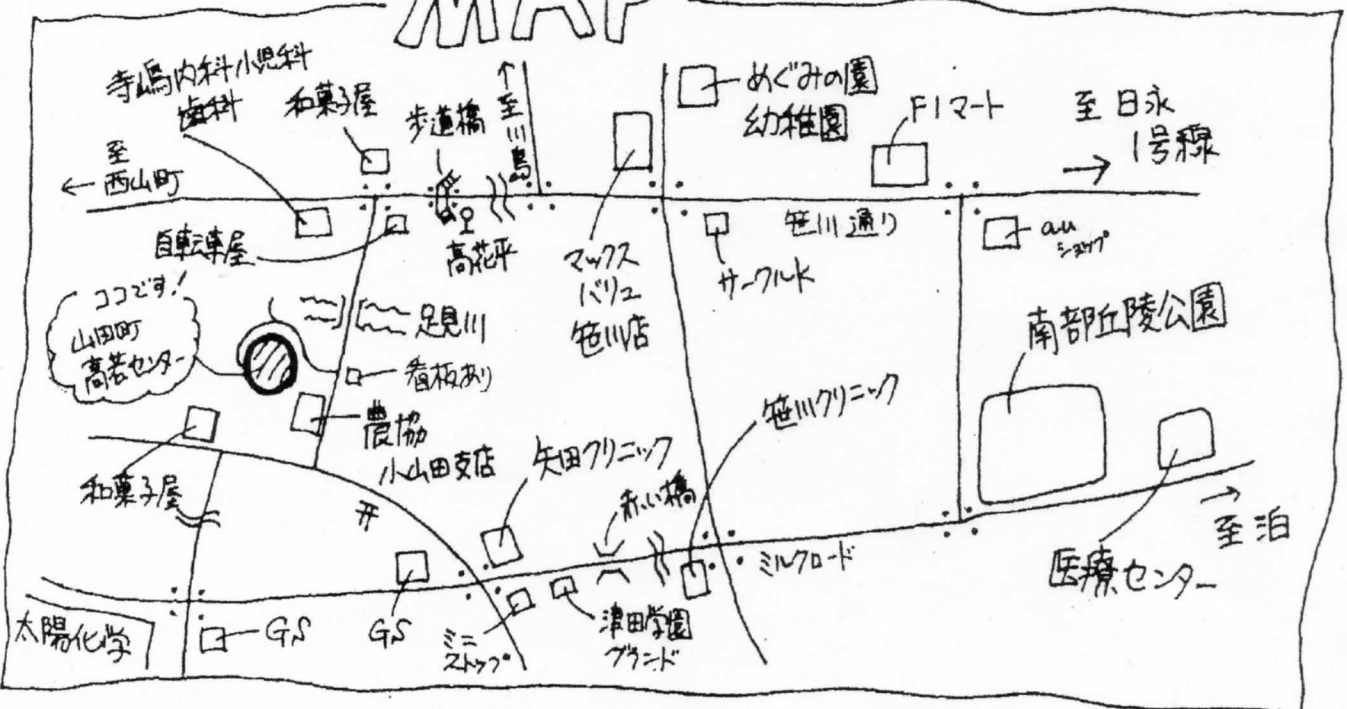 MAP
寺嶋内科小児科
歯科
和菓子屋
歩道橋
↑至川島
めぐみの園
幼稚園
F1マート
至日永
1号線
→
至
← 西山町
自転車屋
高花平
マックス
バリュ
笹川店
サークルK
笹川通り
au
ショップ
ココです!
山田町
高若センター
足見川
看板あり
農協
小山田支店
南部丘陵公園
笹川クリニック
矢田クリニック
赤い橋
和菓子屋
→
至泊
医療センター
ミルクロード
太陽化学
GS
GS
ミニ
ストップ
津田学園
グランド